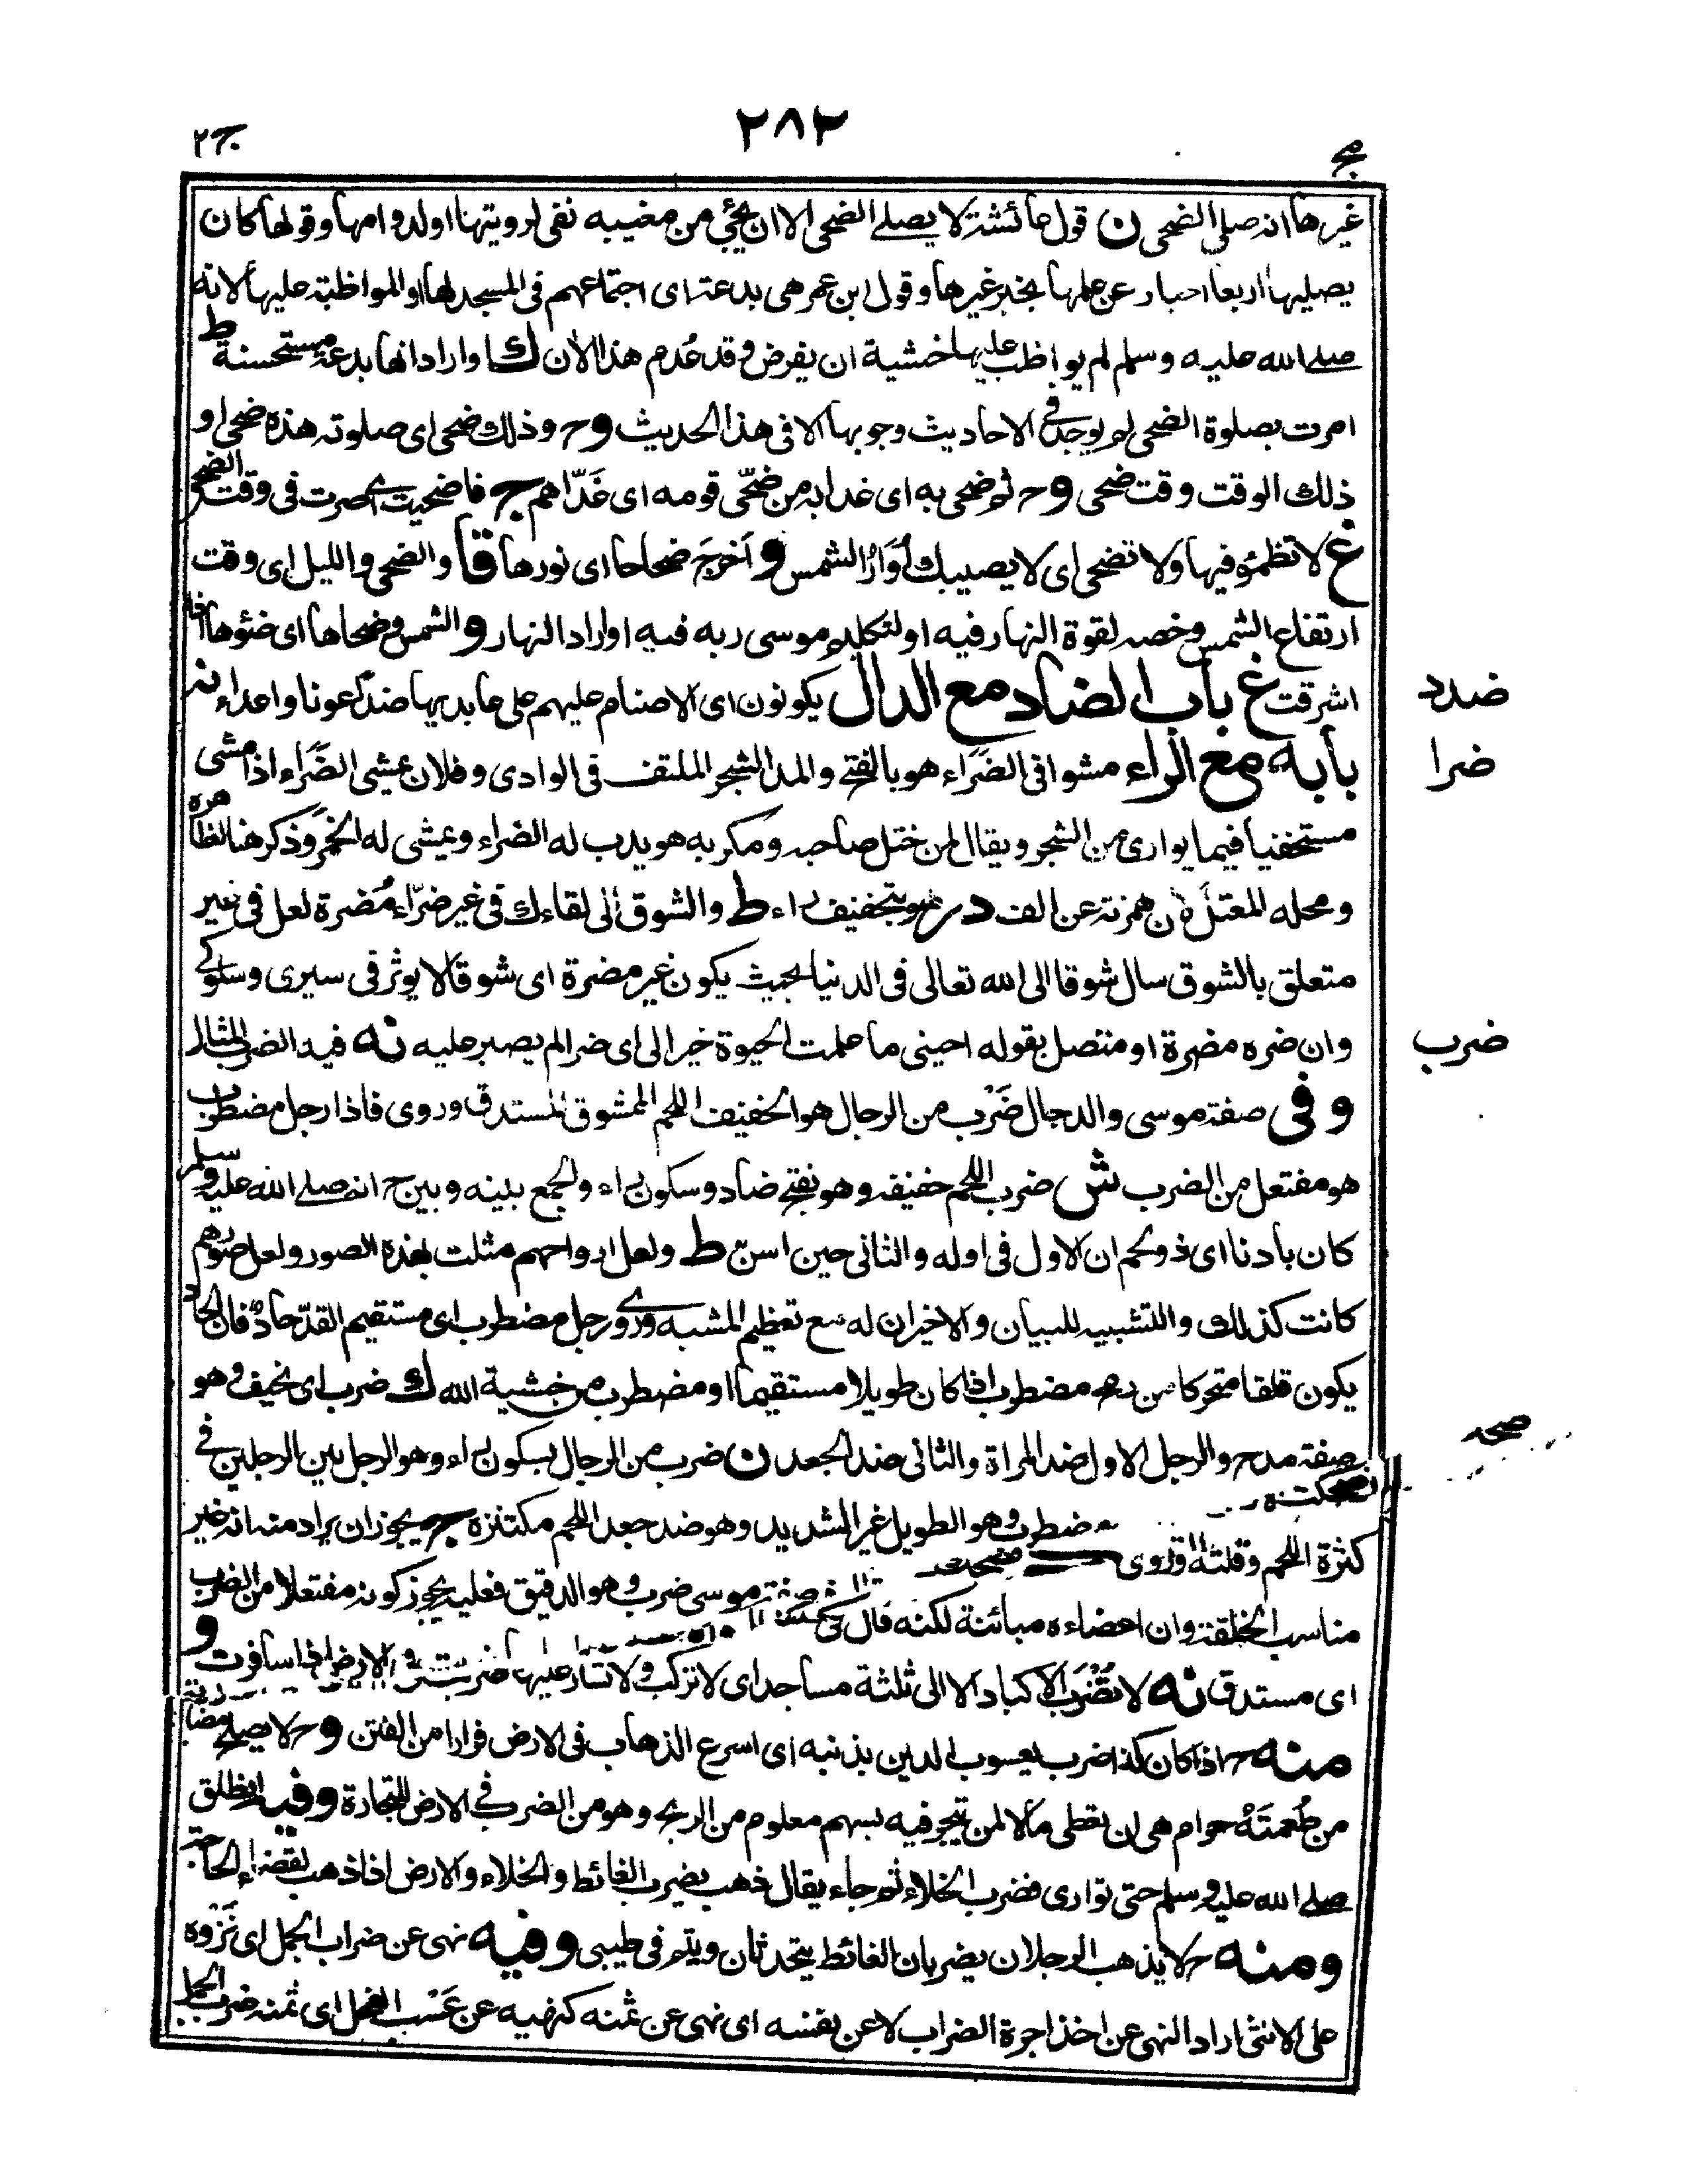 مج
٢٨٢
ج٢
غيرها انه صلى الضحى ن قول عائشة لا يصلے الضحى الا ان يجئ من مغيبه نفى لرويتها اولدوامها وقولها كان
يصليها اربعا اخبار عن علمها بخبر غيرها وقول ابن عمر هى بدعة اى اجتماعهم فى المسجد لها او المواظبة عليها لانه
صلے الله عليه وسلم لم يواظب عليها خشية ان يفرض وقد عُدم هذا الان ك او اراد انها بدعة مستحسنة ط
امرت بصلوة الضحى لم يوجد فى الاحاديث وجوبها الا فى هذا الحديث وح وذلك ضحى اى صلوته هذه ضحى او
ذلك الوقت وقت ضحى وح ثم ضحى به اى غدا به من ضحّى قومه اى غَدّاهم ج فاضحيت اے صرت فى وقت الضحى
غ لا تظمؤ فيها ولا تضحى اى لا يصيبك أُوَارُ الشمس و اَخرجَ ضحاها اى نورها قا والضحى والليل اى وقت
ارتفاع الشمس وخصه لقوة النهار فيه او لتكليم موسى ربه فيه او اراد النهار و الشمس وضحاها اى ضئوها اذا
اشرقت غ باب الضاد مع الدال يكونون اى الاصنام عليهم على عابديها ضدا عونا واعداء نه
ضدد
بابه مع الراء مشوا فى الضَرَاء هو بالفتح والمد الشجر الملتف فى الوادى وفلان يمشى الضَرَاء اذا مشى
ضرا
مستخفيا فيما يوارى من الشجر ويقال لمن ختل صاحبه ومكر به هو يدب له الضراء ويمشى له الخمر وذكر هنا لظاهره
ومحله المعتل لان همزته عن الف در هو بتخفيف راء ط والشوق الى لقاءك فى غير ضرّاء مُضرة لعل فى غير
متعلق بالشوق سال شوقا الى الله تعالى فى الدنيا بحيث يكون غير مضرة اى شوقا لا يوثر فى سيرى وسلوكے
وان ضره مضرة او متصل بقوله احينى ما علمت الحيوة خيرا لى اى ضرا لم يصبر عليه نه فيه الضرب المثال
ضرب
وفى صفة موسى والدجال ضَرْب من الرجال هو الخفيف اللحم الممشوق المستدق وروى فاذا رجل مضطرب
هو مفتعل من الضرب ش ضرب اللحم خفيفه وهو بفتح ضاد وسكون راء والجمع بينه وبين ح انه صلے الله عليه وسلم
كان بادنا اى ذو لحم ان الاول فى اوله والثانى حين اسن ط ولعل ارواحهم مثلت بهذه الصور ولعل صورهم
كانت كذلك والتشبيه للبيان والاخيران له مع تعظيم المشبه وروے رجل مضطرب اى مستقيم القدّ حادّ فان الحاد
يكون قلقا متحركا من رمح مضطرب اذا كان طويلا مستقيما او مضطرب من خشية الله ك ضرب اى نحيف وهو
صفة مدح والرجل الاول ضد المراة والثانى ضد الجعد ن ضرب من الرجال بسكون راء وهو الرجل بين الرجلين فى
كثرة اللحم وقلته وروى ضطرب وهو الطويل غير الشديد وهو ضد جعد اللحم مكتنزه ج يجوز ان يراد منه انه غير
مناسب الخلقة وان اعضاءه مبائنة لكنه قال فى صفة موسى ضرب وهو الدقيق فعليه يجوز كونه مفتعلا من الضرب
اى مستدق نه لا تُضْرَب الاكباد الا الى ثلثة مساجد اى لا تركب ولا تسار عليها ضربت فى الارض اذا سافرت و
منه ح اذا كان كذا ضرب يعسوب الدين بذنبه اى اسرع الذهاب فى الارض فرارا من الفتن وح لا يصلح مضاربة
من طُعمتَهُ حرام هى ان تعطى مالا لمن يتجر فيه بسهم معلوم من الربح وهو من الضرب فے الارض للتجارة وفيه انطلق
صلے الله عليه وسلم حتى توارى فضرب الخلاء ثم جاء يقال ذهب يضرب الغائط والخلاء والارض اذا ذهب لقضاء الحاجة
ومنه ح لا يذهب الرجلان يضربان الغائط يتحدثان ويتم فى طيبى وفيه نهى عن ضراب الجمل اى نَزْوه
على الانثى اراد النهى عن اخذ اجرة الضراب لا عن نفسه اى نهى عن ثمنه كنهيه عن عَسْب الفحل اى ثمنه ضرب الجمل